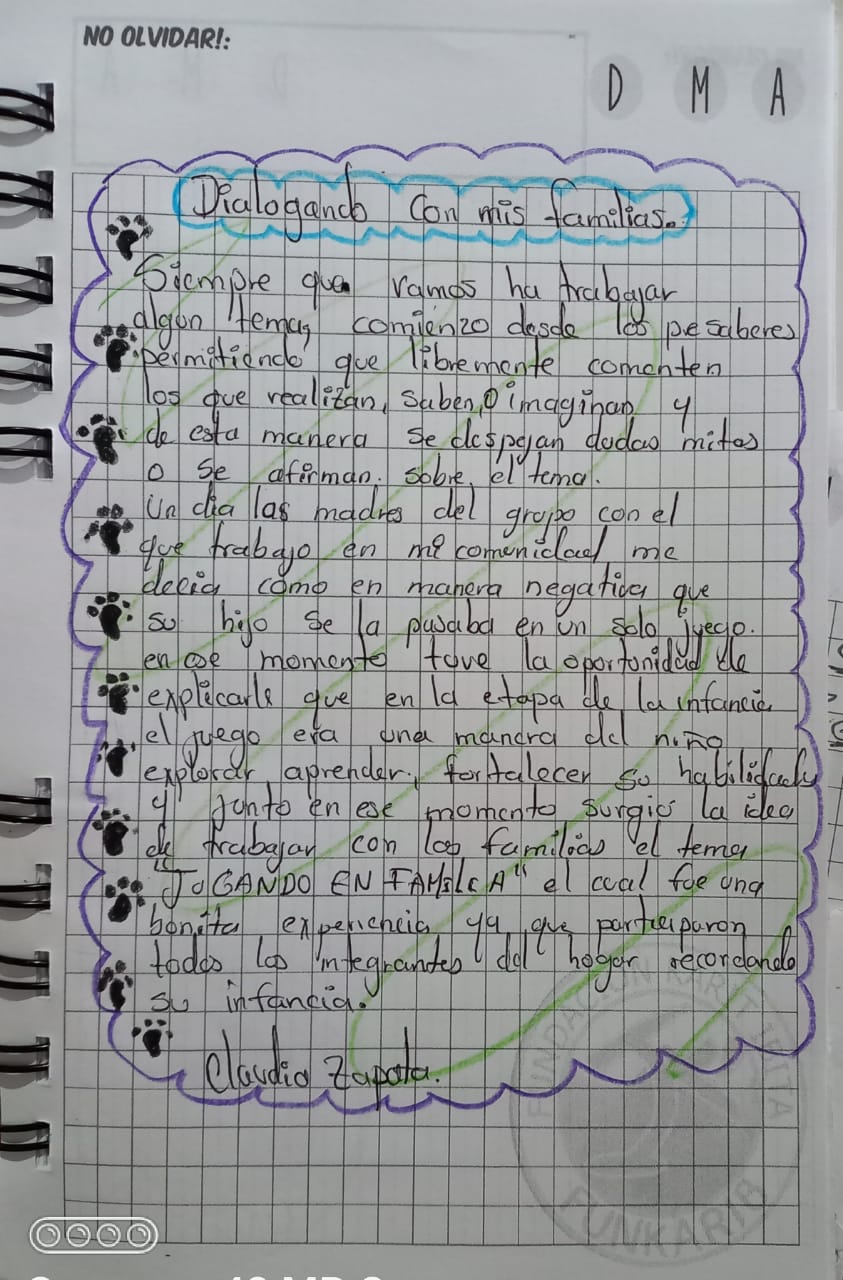 NO OLVIDAR!:
D M A
Dialogando Con mis familias.
Siempre que vamos ha trabajar
algun tema, comienzo desde los presaberes
permitiendo que libremente comenten
los que realizan, saben, o imaginan y
de esta manera se despejan dudas mitos
o se afirman. sobre el tema.
Un dia las madres del grupo con el
que trabajo en mi comunidad me
decia como en manera negativa que
su hijo se la pasaba en un solo juego.
en ese momento tuve la oportunidad de
explicarle que en la etapa de la infancia
el juego era una manera del niño
explorar, aprender, fortalecer su habilidades
y junto en ese momento surgio la idea
de trabajar con las familias el tema
"JUGANDO EN FAMILIA" el cual fue una
bonita experiencia ya que participaron
todos los integrantes del hogar recordando
su infancia.
Claudia Zapata.
FUNKARIB